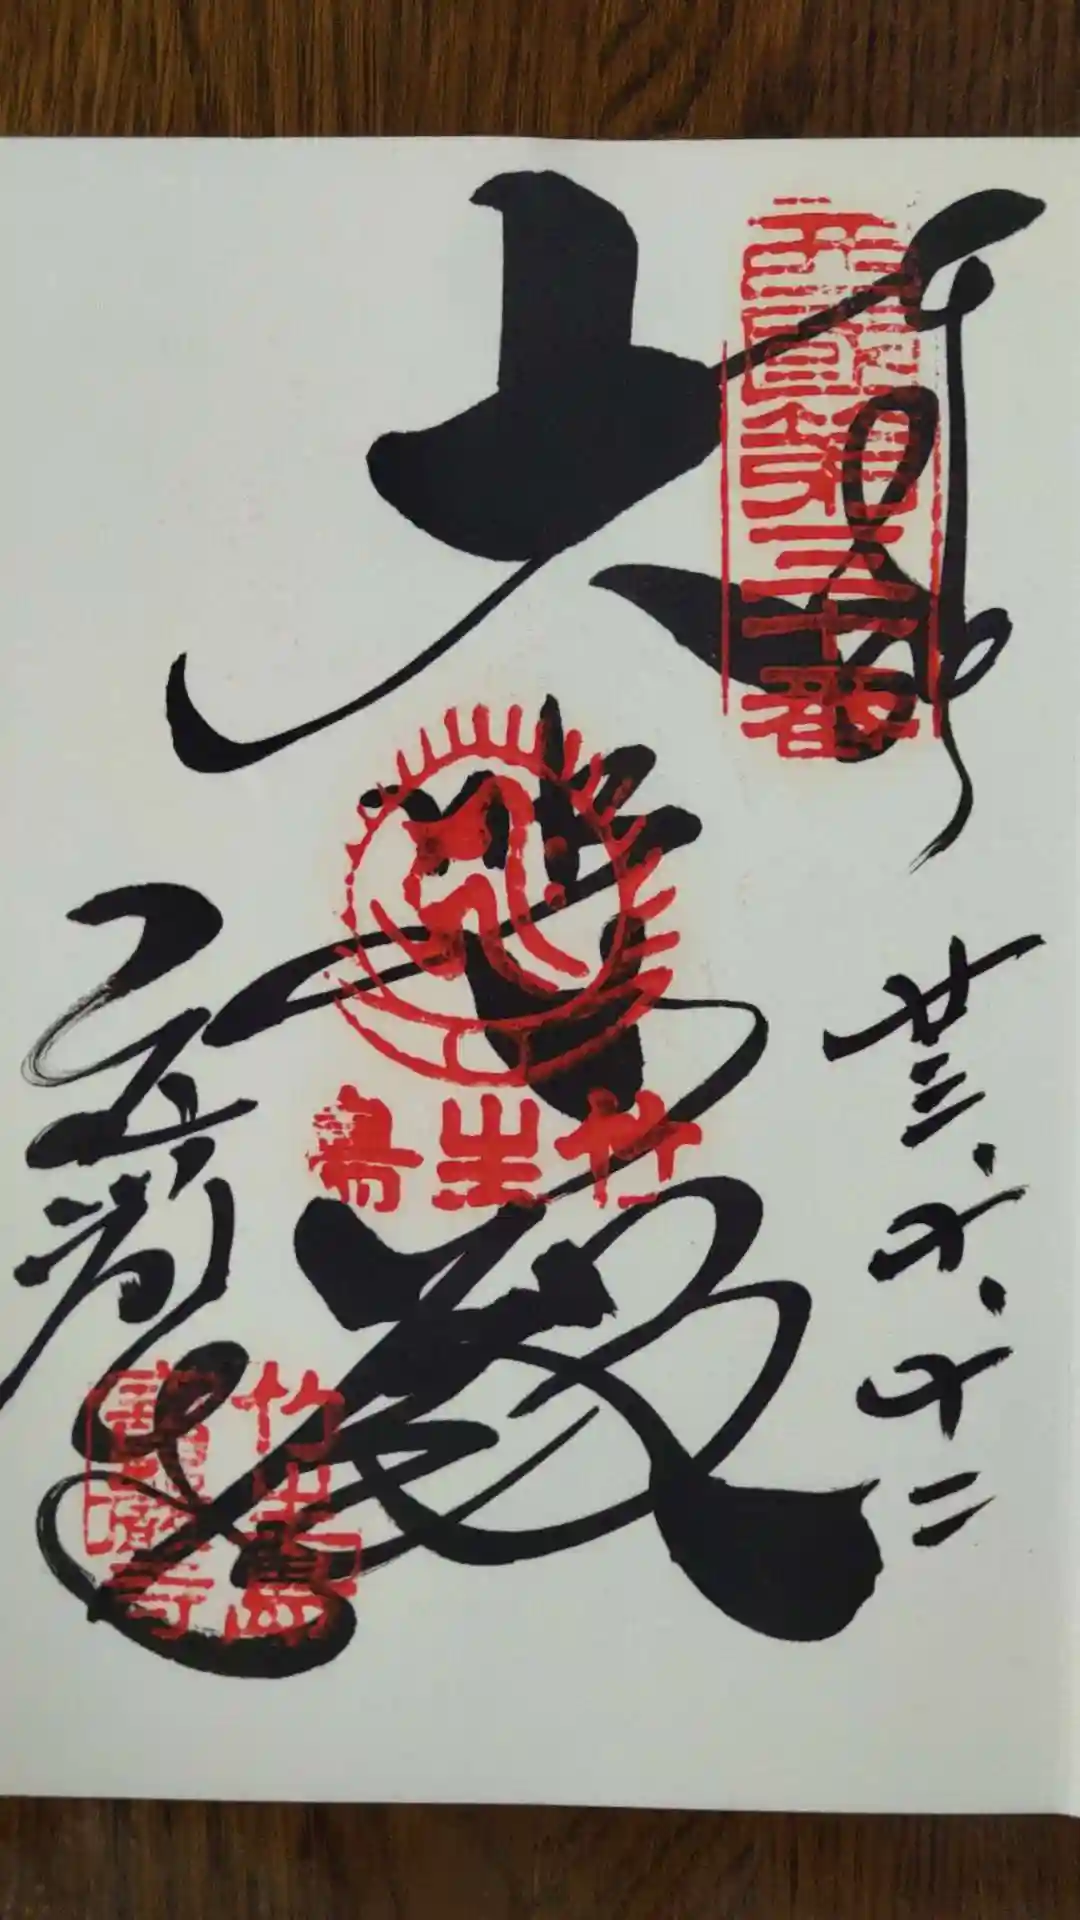 奉拝
西國第三十番
廿三
十二
大悲殿
竹生島
竹生島
寶嚴寺